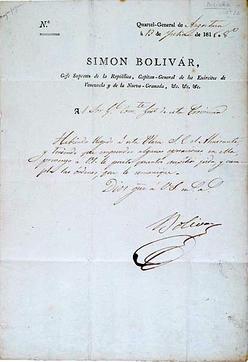 N.º
Quartel-General de
á 13 de Julio de 1816.
SIMON BOLIVÁR,
Gefe Supremo de la República, Capitan-General de los Exércitos de
Venezuela y de la Nueva-Granada, &c. &c. &c.
Habiendo llegado á esta Plaza S. E. el Almirante
y teniendo que emprender algunas operaciones en ella
prevengo á VS. le preste quantos auxilios pida y cum
pla las órdenes que le comunique.
Dios gue á VS. m. a.
Bolivar